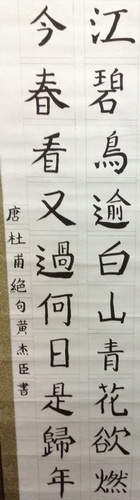 江碧鳥逾白山青花欲燃
今春看又過何日是歸年
唐杜甫絕句黃杰臣書